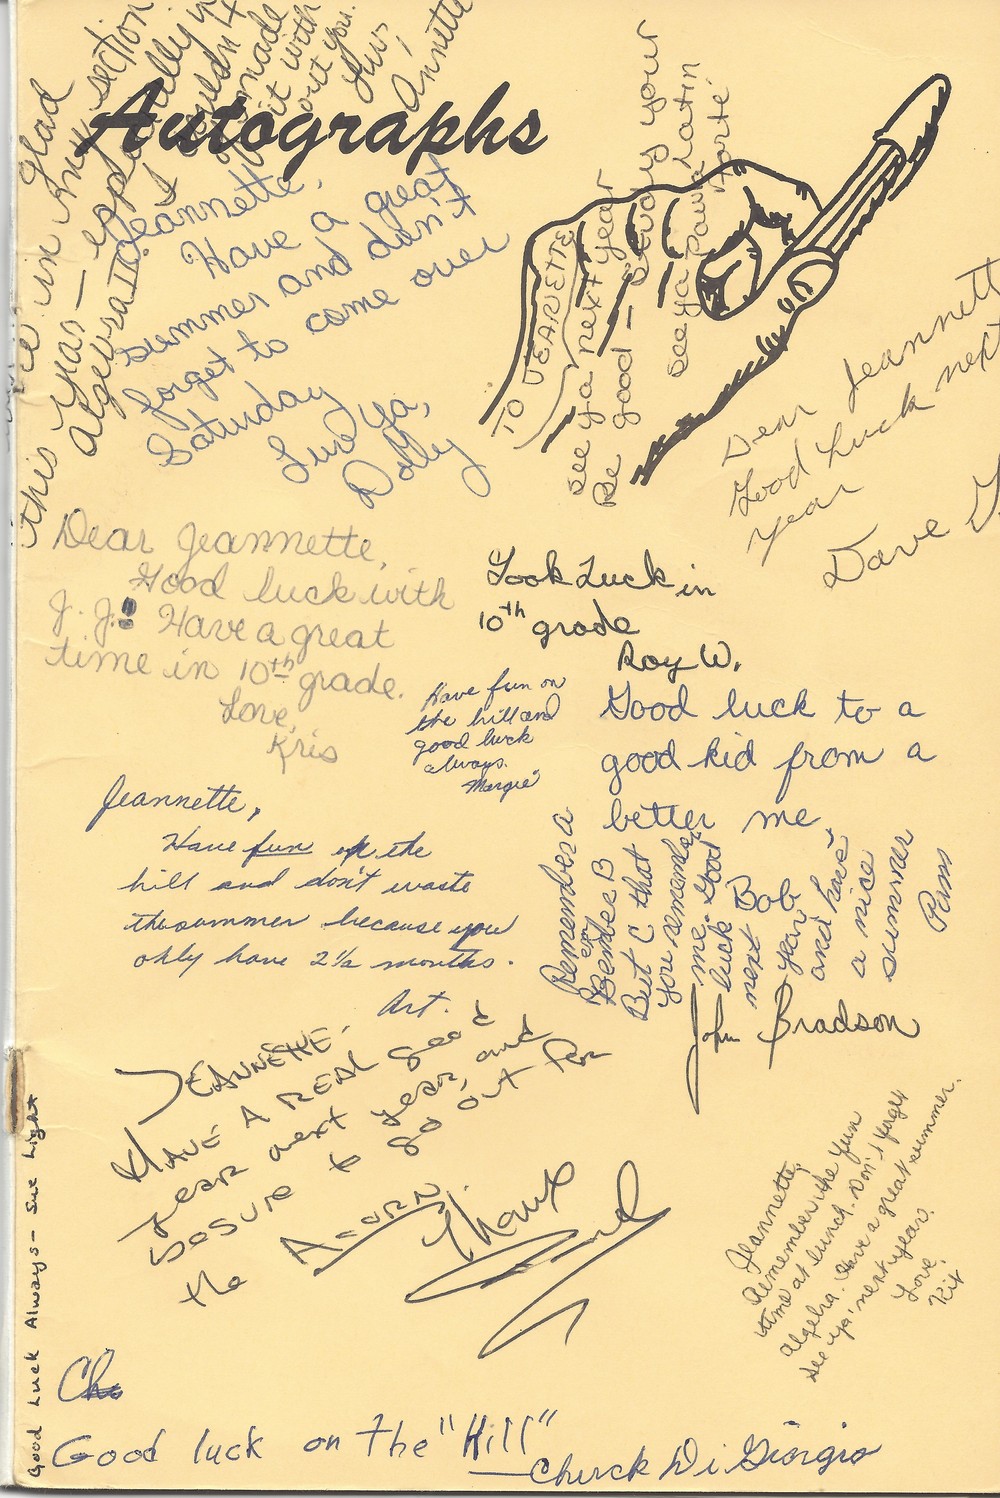 Autographs
Glad
in my section
this year — especially in
Algebra II. I
couldn't
made
it with
out you.
Luv,
Annette
Jeannette,
Have a great
summer and don't
forget to come over
Saturday
Luv Ya,
Dolly
TO JEANETTE
see ya next year
Be good — study your
see ya Latin
Dear Jeannett
Good Luck next
year
Dave
Dear Jeannette,
Good luck with
J. J.! Have a great
time in 10th grade.
Love,
Kris
Look Luck in
10th grade
Roy W.
Have fun on
the hill and
good luck
always.
Margie
Good luck to a
good kid from a
better me
Bob
Jeannette,
Have fun up the
hill and don't waste
the summer because you
only have 2½ months.
Art.
Remember A
Remember B
But C that
you remember
me. Good
luck
next
year
and have
a nice
summer
Pam
John Bradson
JEANNETTE-
HAVE A REAL good
year next year, and
be sure to go out for
the ACORN.
Thanx
Jeannette,
Remember the fun
time at lunch. Don't forget
algebra. Have a great summer.
See ya' next year.
Love,
Kit
Good Luck Always - Sue Light
Ch
Good luck on the "Hill"
—Chuck DiGiorgio